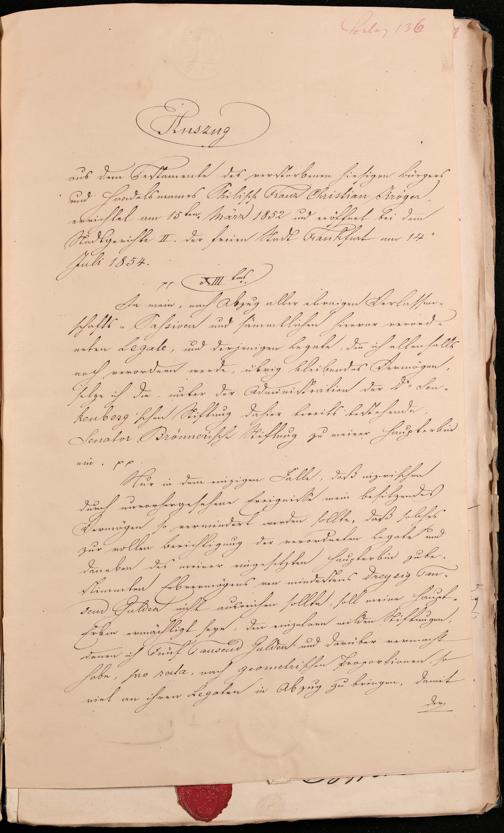 Auszug
aus dem Testamente des verstorbenen hiesigen Bürgers
und Handelsmannes Franz Christian Kröger,
errichtet am 15ten März 1852 und eröffnet bei dem
Stadtgerichte II. der freien Stadt Frankfurt am 14
Juli 1854.
pp XIII
In mein, nach Abzug aller etwaigen Verlassen-
schafts-Passiven und sämmtlichen hiervor verord-
neten Legate, und derjenigen Legate, die ich allenfalls
noch verordnen werde, übrig bleibendes Vermögen,
setze ich die, unter der Administration der Dr. Sen-
kenberg'schen Stiftung dahier bereits bestehende
Senator Brönnerische Stiftung zu meiner Haupterbin
ein. pp.
Nur in dem einzigen Falle, daß inzwischen
durch unvorhergesehene Ereignisse mein besitzendes
Vermögen so vermindert werden sollte, daß solches
zur vollen Berichtigung der verordneten Legate und
daneben des meiner eingesetzten Haupterbin zube-
stimmten Erbvermögens von mindestens Dreyzig Tau-
send Gulden nicht ausreichen sollte, soll meine Haupt-
Erbin ermächtigt seyn, den einzelnen milden Stiftungen,
denen ich Fünf Tausend Gulden und darüber vermacht
habe, pro rata, nach geometrischen Proportionen, so
viel an ihren Legaten in Abzug zu bringen, damit
der